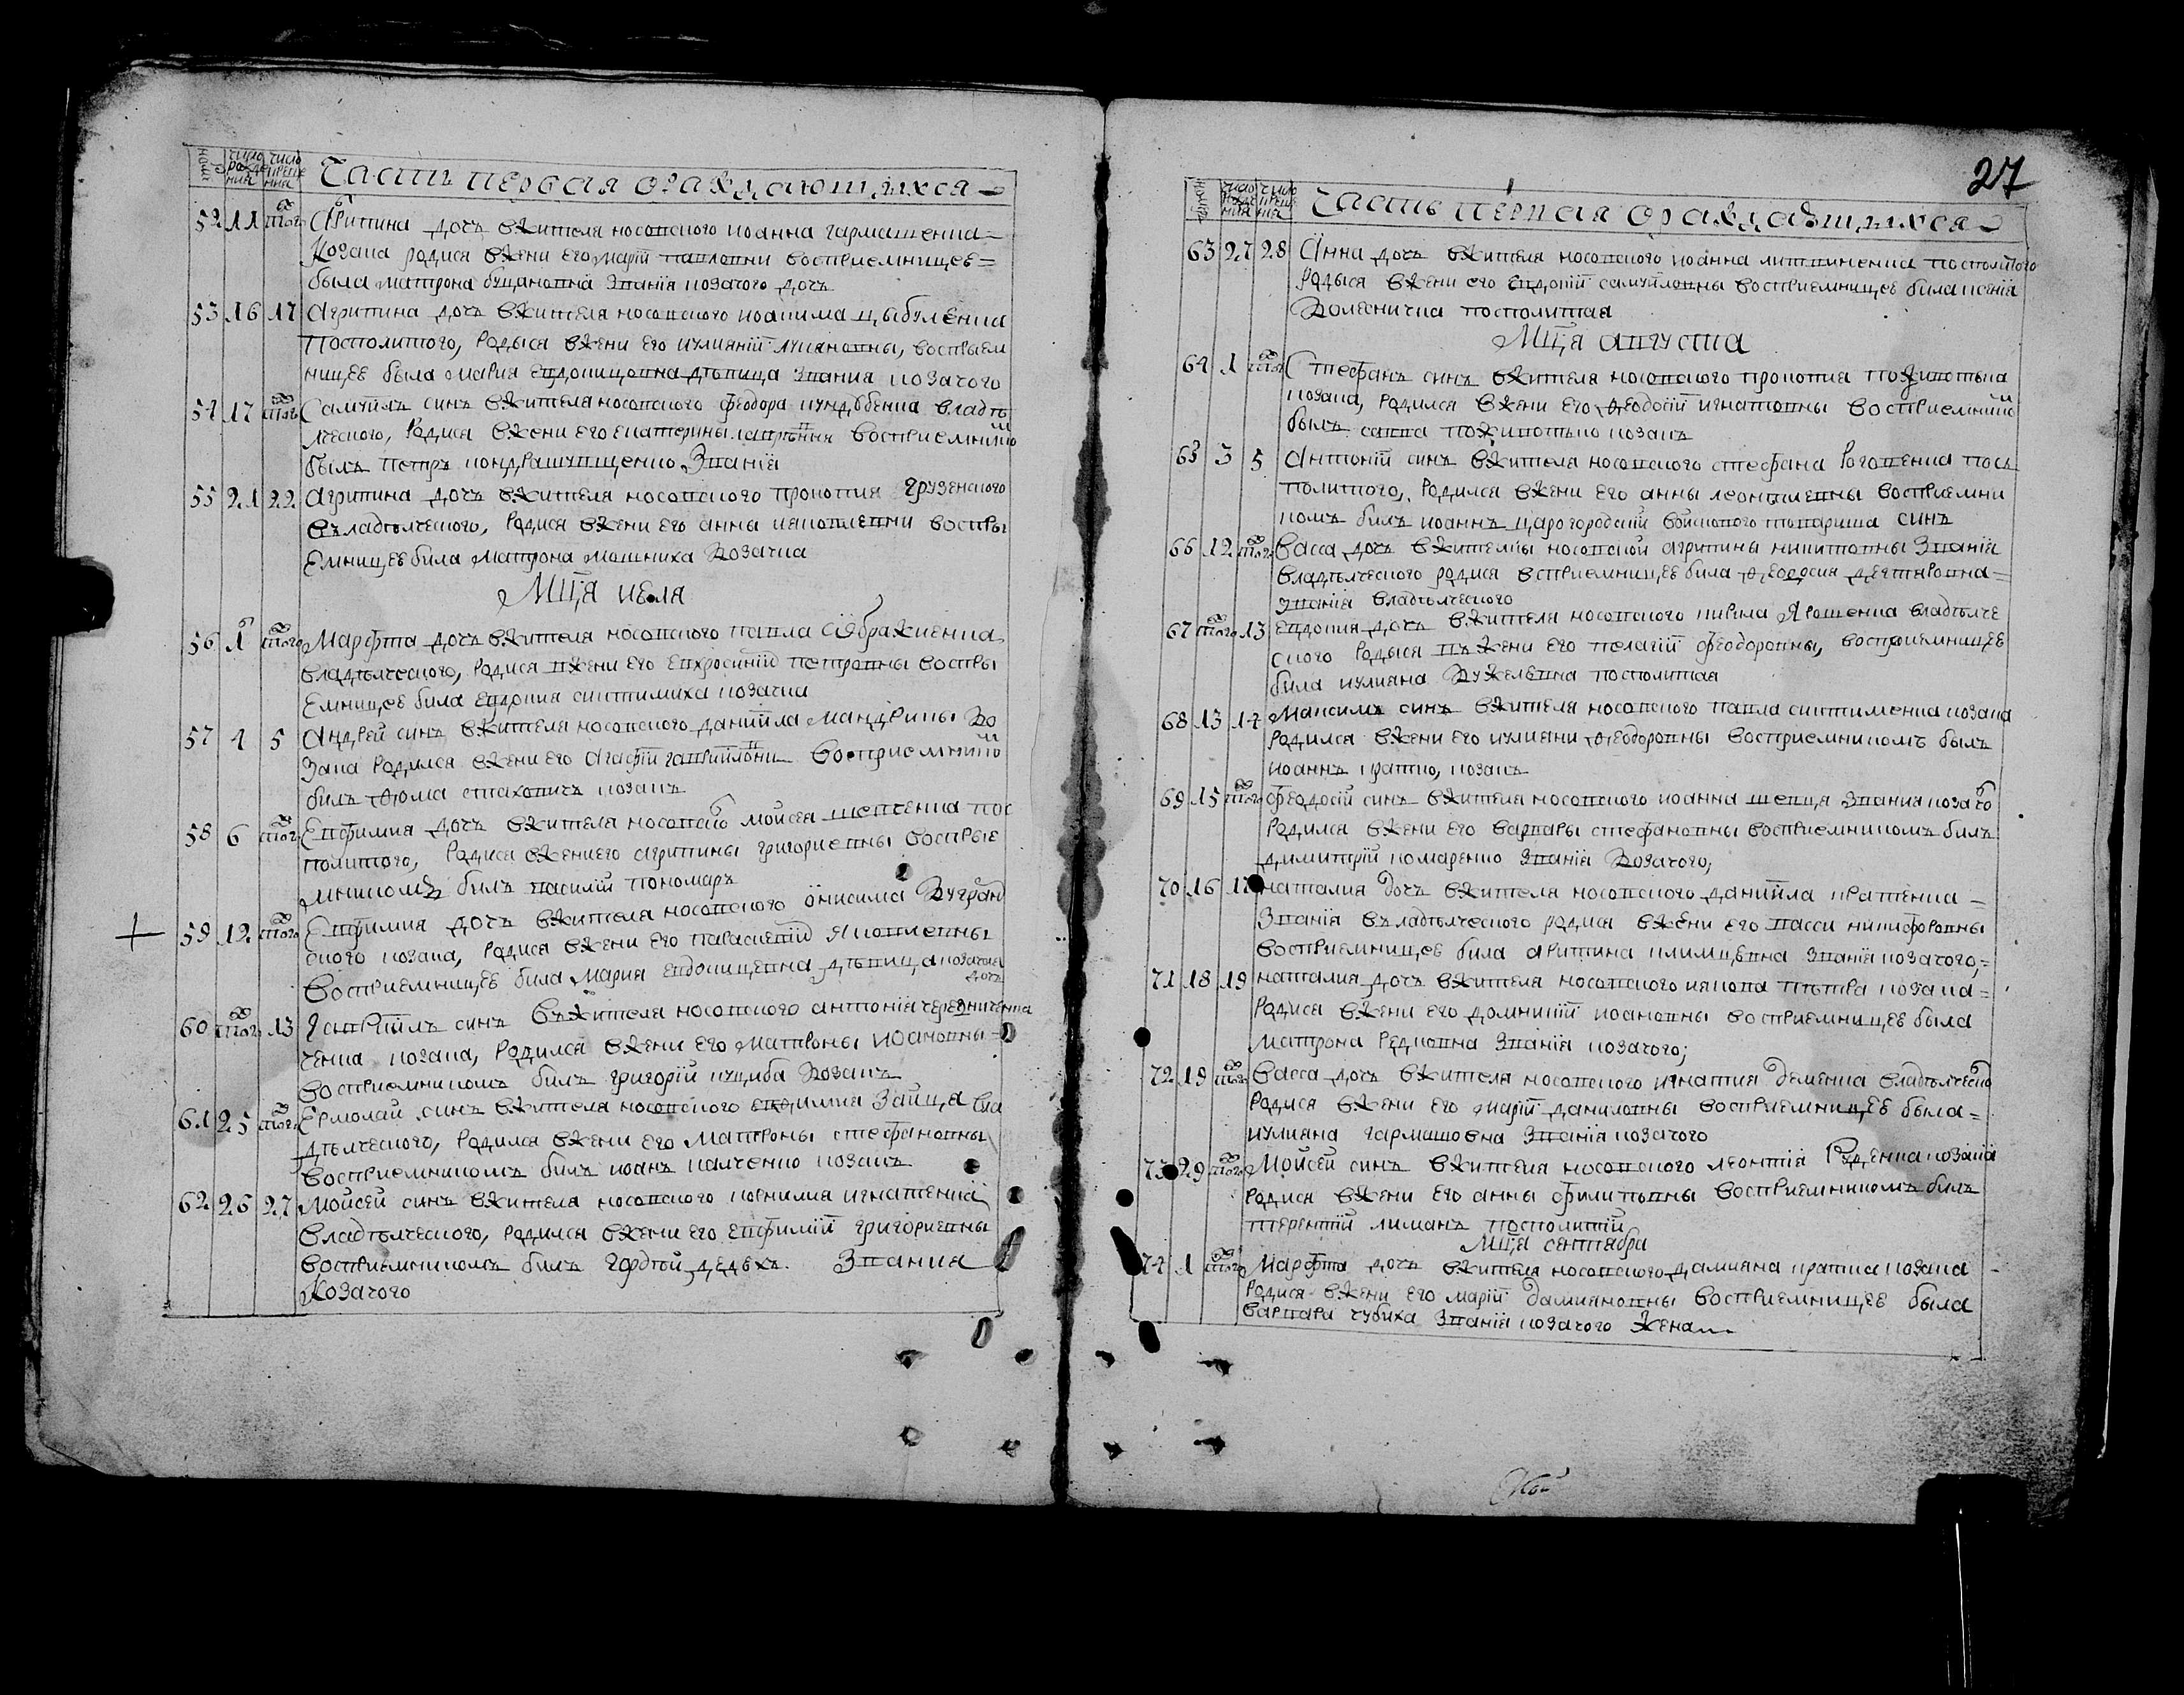 27
номер число рождения число крещения Часть первая ораждающихся
52 11 того Агрипина дочъ вжителя носовского иоанна гармашенка
Козака родися вжени его марїи павловни восприемницею
была матрона буцановна Званїя козачого дочъ
53 16 17 Агрипина дочъ вжителя носовского иоакима цыбуленка
посполитого, родыся вжени его иулиянїи лукяновны, восприем
ницею была мария евдокицовна дѣвица звания козачого
54 17 того Самуилъ синъ вжителя носовского феодора кундюбенка владѣ
лческого, родися вжени его екатерины лавренния восприемником
былъ петръ кондрашувщенко званїя
55 21 22 Агрипина дочъ вжителя носовского прокопия грузенского
въладѣлческого, родися вжени его анны иаковлевни воспры
емницею била матрона мошниха козачка
Мца иуля
56 1 того Марфта дочъ вжителя носовского павла сїображченка
владѣлческого, родися вжени его евхросинїи петровны воспры
емницею била евдокия сиптимиха козачка
57 4 5 Андрей синъ вжителя носовского даниила мандрики ко
зака родился вжени его агафїи гавриловни восприемником
билъ фома стаховичъ козакъ
58 6 того Евфимия дочъ вжителя носовско мойсея шевченка пос
политого, родися вжени его агрипины григориевны восприе
мникомъ билъ василий пономаръ
59 12 того Евфимия дочъ вжителя носовского онисима кугран
ского козака, родися вжени его параскевїи яковлевны
восприемницею била мария евдокищевна дѣвица козачая дочъ
60 того 13 Гавриилъ синъ въжителя носовского антонїя чередниченка
ченка козака, родился вжени его матроны иоановны
восприемникомъ билъ григорїй куциба козакъ
61 25 того Ермолай синъ вжителя носовского евфимия зайця вла
дѣлческого, родился вжени его матроны стефановны
восприемникомъ билъ иоанъ калченко козакъ
62 26 27 Мойсей синъ вжителя носовского корнилия игнатенка
владѣлческого, родился вжени его евфимїи григориевны
восприемникомъ билъ гордѣй дедюхъ звания
козачого
номеръ число рожде ния число креще ния Часть первая ораждающихся
63 27 28 Анна дочъ вжителя носовского иоанна литвиненка посполитого
родыся вжени его евдокїи самуиловны восприемницею била ксенїя
колесничка посполитая
Мця августа
64 1 того Стефанъ синъ вжителя носовского прокопия поживотька
козака, родился вжени его феодосїи игнатовны восприемником
былъ савва поживотько козакъ
65 3 5 Антонїй синъ вжителя носовского стефана роговенка пось
политого, родился вжени его анны леонтиевны восприемни
комъ билъ иоаннъ царогородский войскового товариша синъ
66 12 того Васса дочъ вжителки носовской агрипины никитовны званїя
владѣлческого родися восприемницею била феодосия дегтяровна
званїя владѣлческого
67 того 13 Евдокия дочъ вжителя носовского кирила ярошенка владѣлче
ского родыся въжени его пелагїи феодоровны, восприемницею
била иулияна кужелевна посполитая
68 13 14 Максимъ синъ вжителя носовского павла сиптименка козака
родился вжени его иулияни феодоровны восприемникомъ былъ
иоаннъ кратко, козакъ
69 15 того Феодосїй синъ вжителя носовского иоанна шевця звания козачо
родился вжени его варвары стефановны восприемникомъ билъ
димитрїй комаренко званїя козачого,
70 16 17 наталия дочъ вжителя носовского даниила кратенка
званїя въладѣлческого родися вжени его васси никифоровны
восприемницею била агрипина климцевна званїя козачого,
71 18 19 наталия дочъ вжителя носовского иякова пѣтра козака
родися вжени его домникїи иоановны восприемницею была
матрона редковна званїя козачого;
72 19 того Васса дочъ вжителя носовского игнатия деменка владѣлческо
родися вжени его марїи даниловны восприемницею была
иулияна гармашовна званїя козачого
73 29 того Мойсей синъ вжителя носовского леонтїя руденка козака
родися вжени его анны филиповны восприемникомъ билъ
терентїй лиманъ посполитїй
Мця сентября
74 1 того Марфта дочъ вжителя носовского дамияна кратка козака
родися вжени его марїи дамияновны восприемницею была
варвара чубиха званїя козачого жена